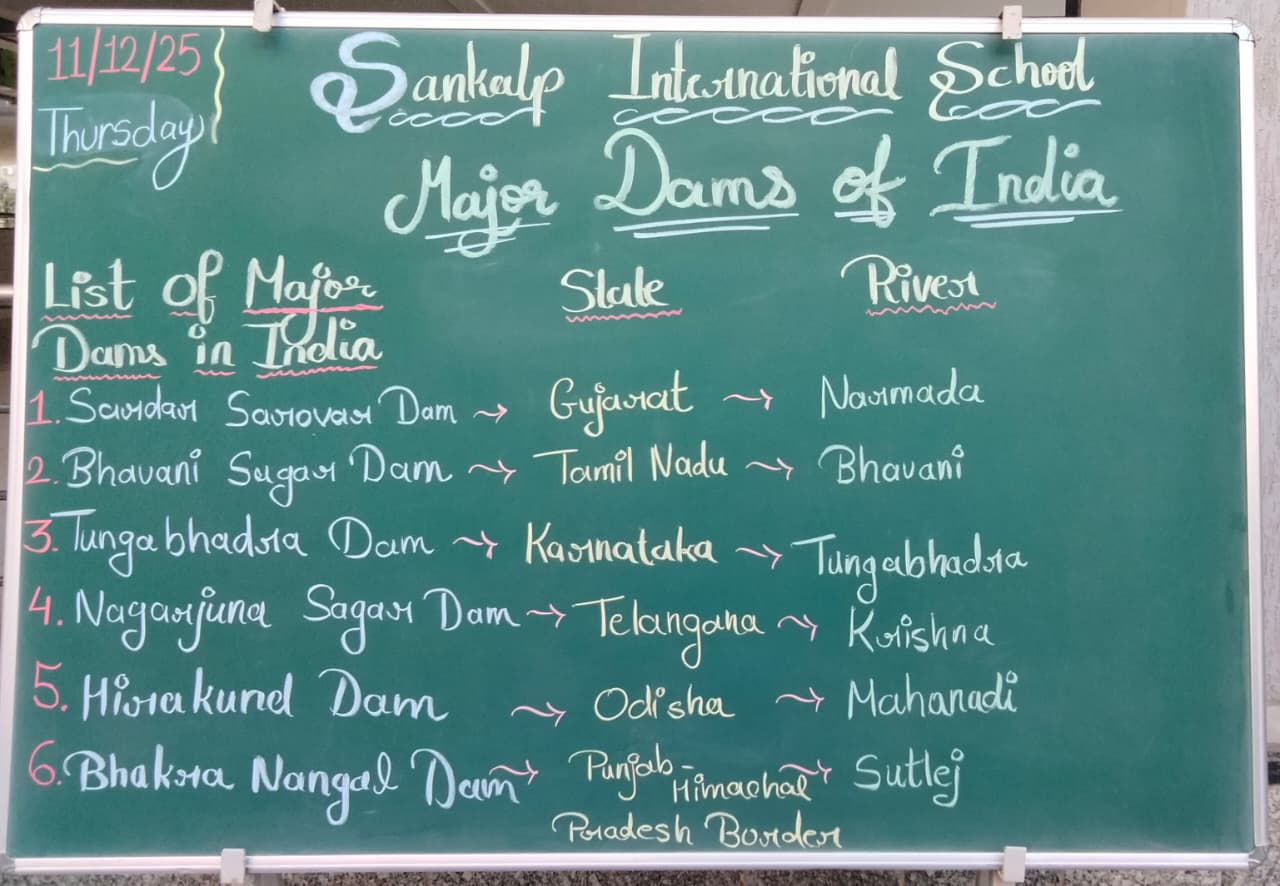 11/12/25
Thursday
Sankalp International School
Major Dams of India
List of Major Dams in India State River
1. Sardar Sarovar Dam → Gujarat → Narmada
2. Bhavani Sugar Dam → Tamil Nadu → Bhavani
3. Tungabhadra Dam → Karnataka → Tungabhadra
4. Nagarjuna Sagar Dam → Telangana → Krishna
5. Hirakund Dam → Odisha → Mahanadi
6. Bhakra Nangal Dam → Punjab - Himachal → Sutlej
Pradesh Border